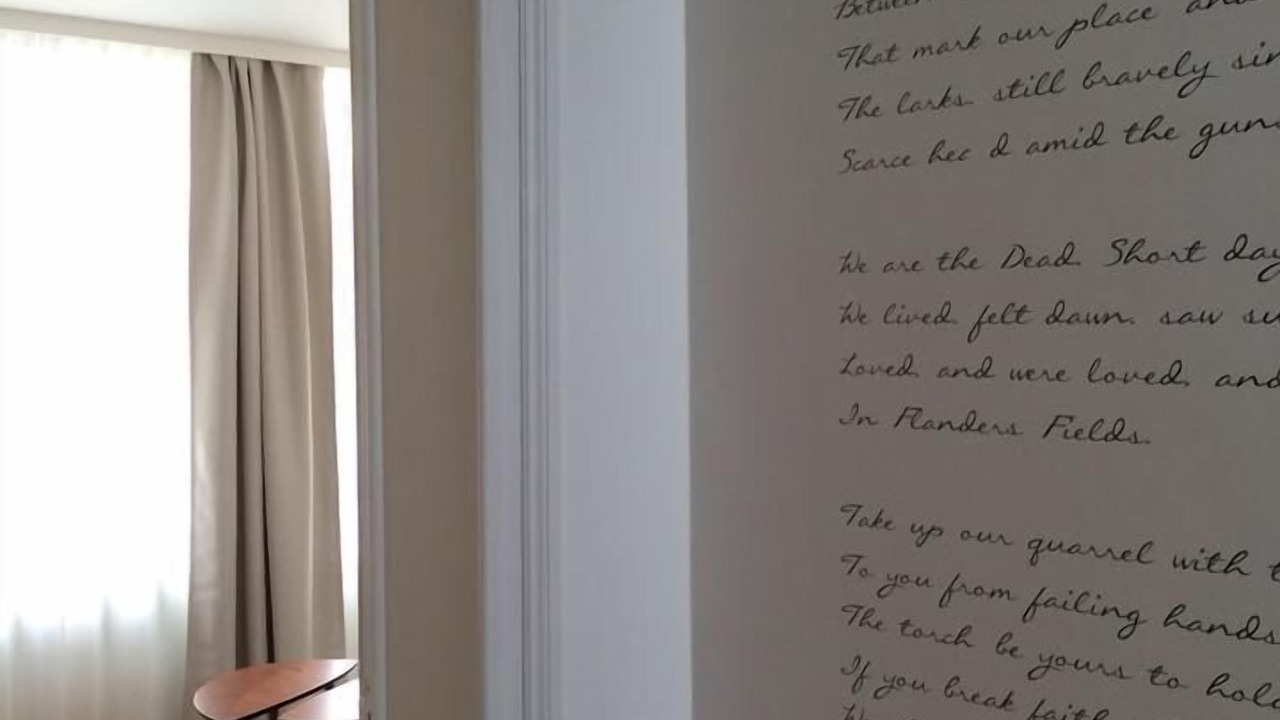 Between
That mark our place and
The larks still bravely sin
Scarce hea d amid the gun
We are the Dead. Short day
We lived, felt dawn, saw su
Loved, and were loved, and
In Flanders Fields.
Take up our quarrel with t
To you from failing hands
The torch be yours to hold
If you break faith
We